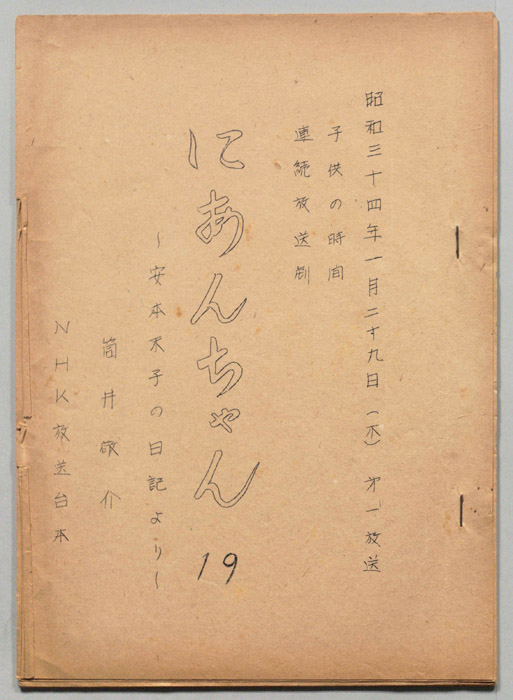 昭和三十四年一月二十九日（木）第一放送
子供の時間
連続放送劇
にあんちゃん 19
〜安本末子の日記より〜
筒井敬介
NHK放送台本